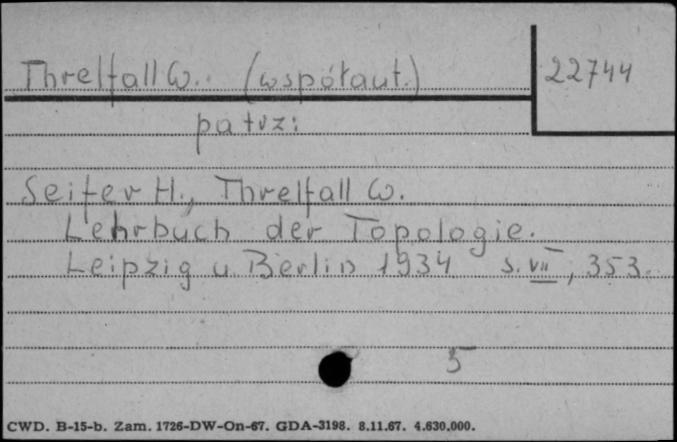 Threlfall W.. (współaut.) 22744
patrz:
Seifer H., Threlfall W.
Lehrbuch der Topologie.
Leipzig u Berlin 1934 s. VII, 353.
5
CWD. B-15-b. Zam. 1726-DW-On-67. GDA-3198. 8.11.67. 4.630.000.